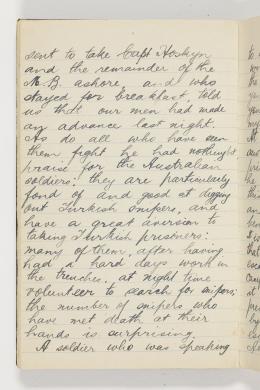 sent to take Capt Hoskyn
and the remainder of the
N.B. ashore, and who
stayed for breakfast told
us that our men had made
an advance last night.
As do all who have seen
them fight he had nothing but
praise for the Australian
soldiers; they are particularly
fond of and good at digging
out Turkish snipers, and
have a great aversion to
taking Turkish prisoners:
many of them, after having
had a hard days work in
the trenches, at night time
volunteer to search for snipers;
the number of snipers who
have met death at their
hands is surprising.
A soldier who was speaking